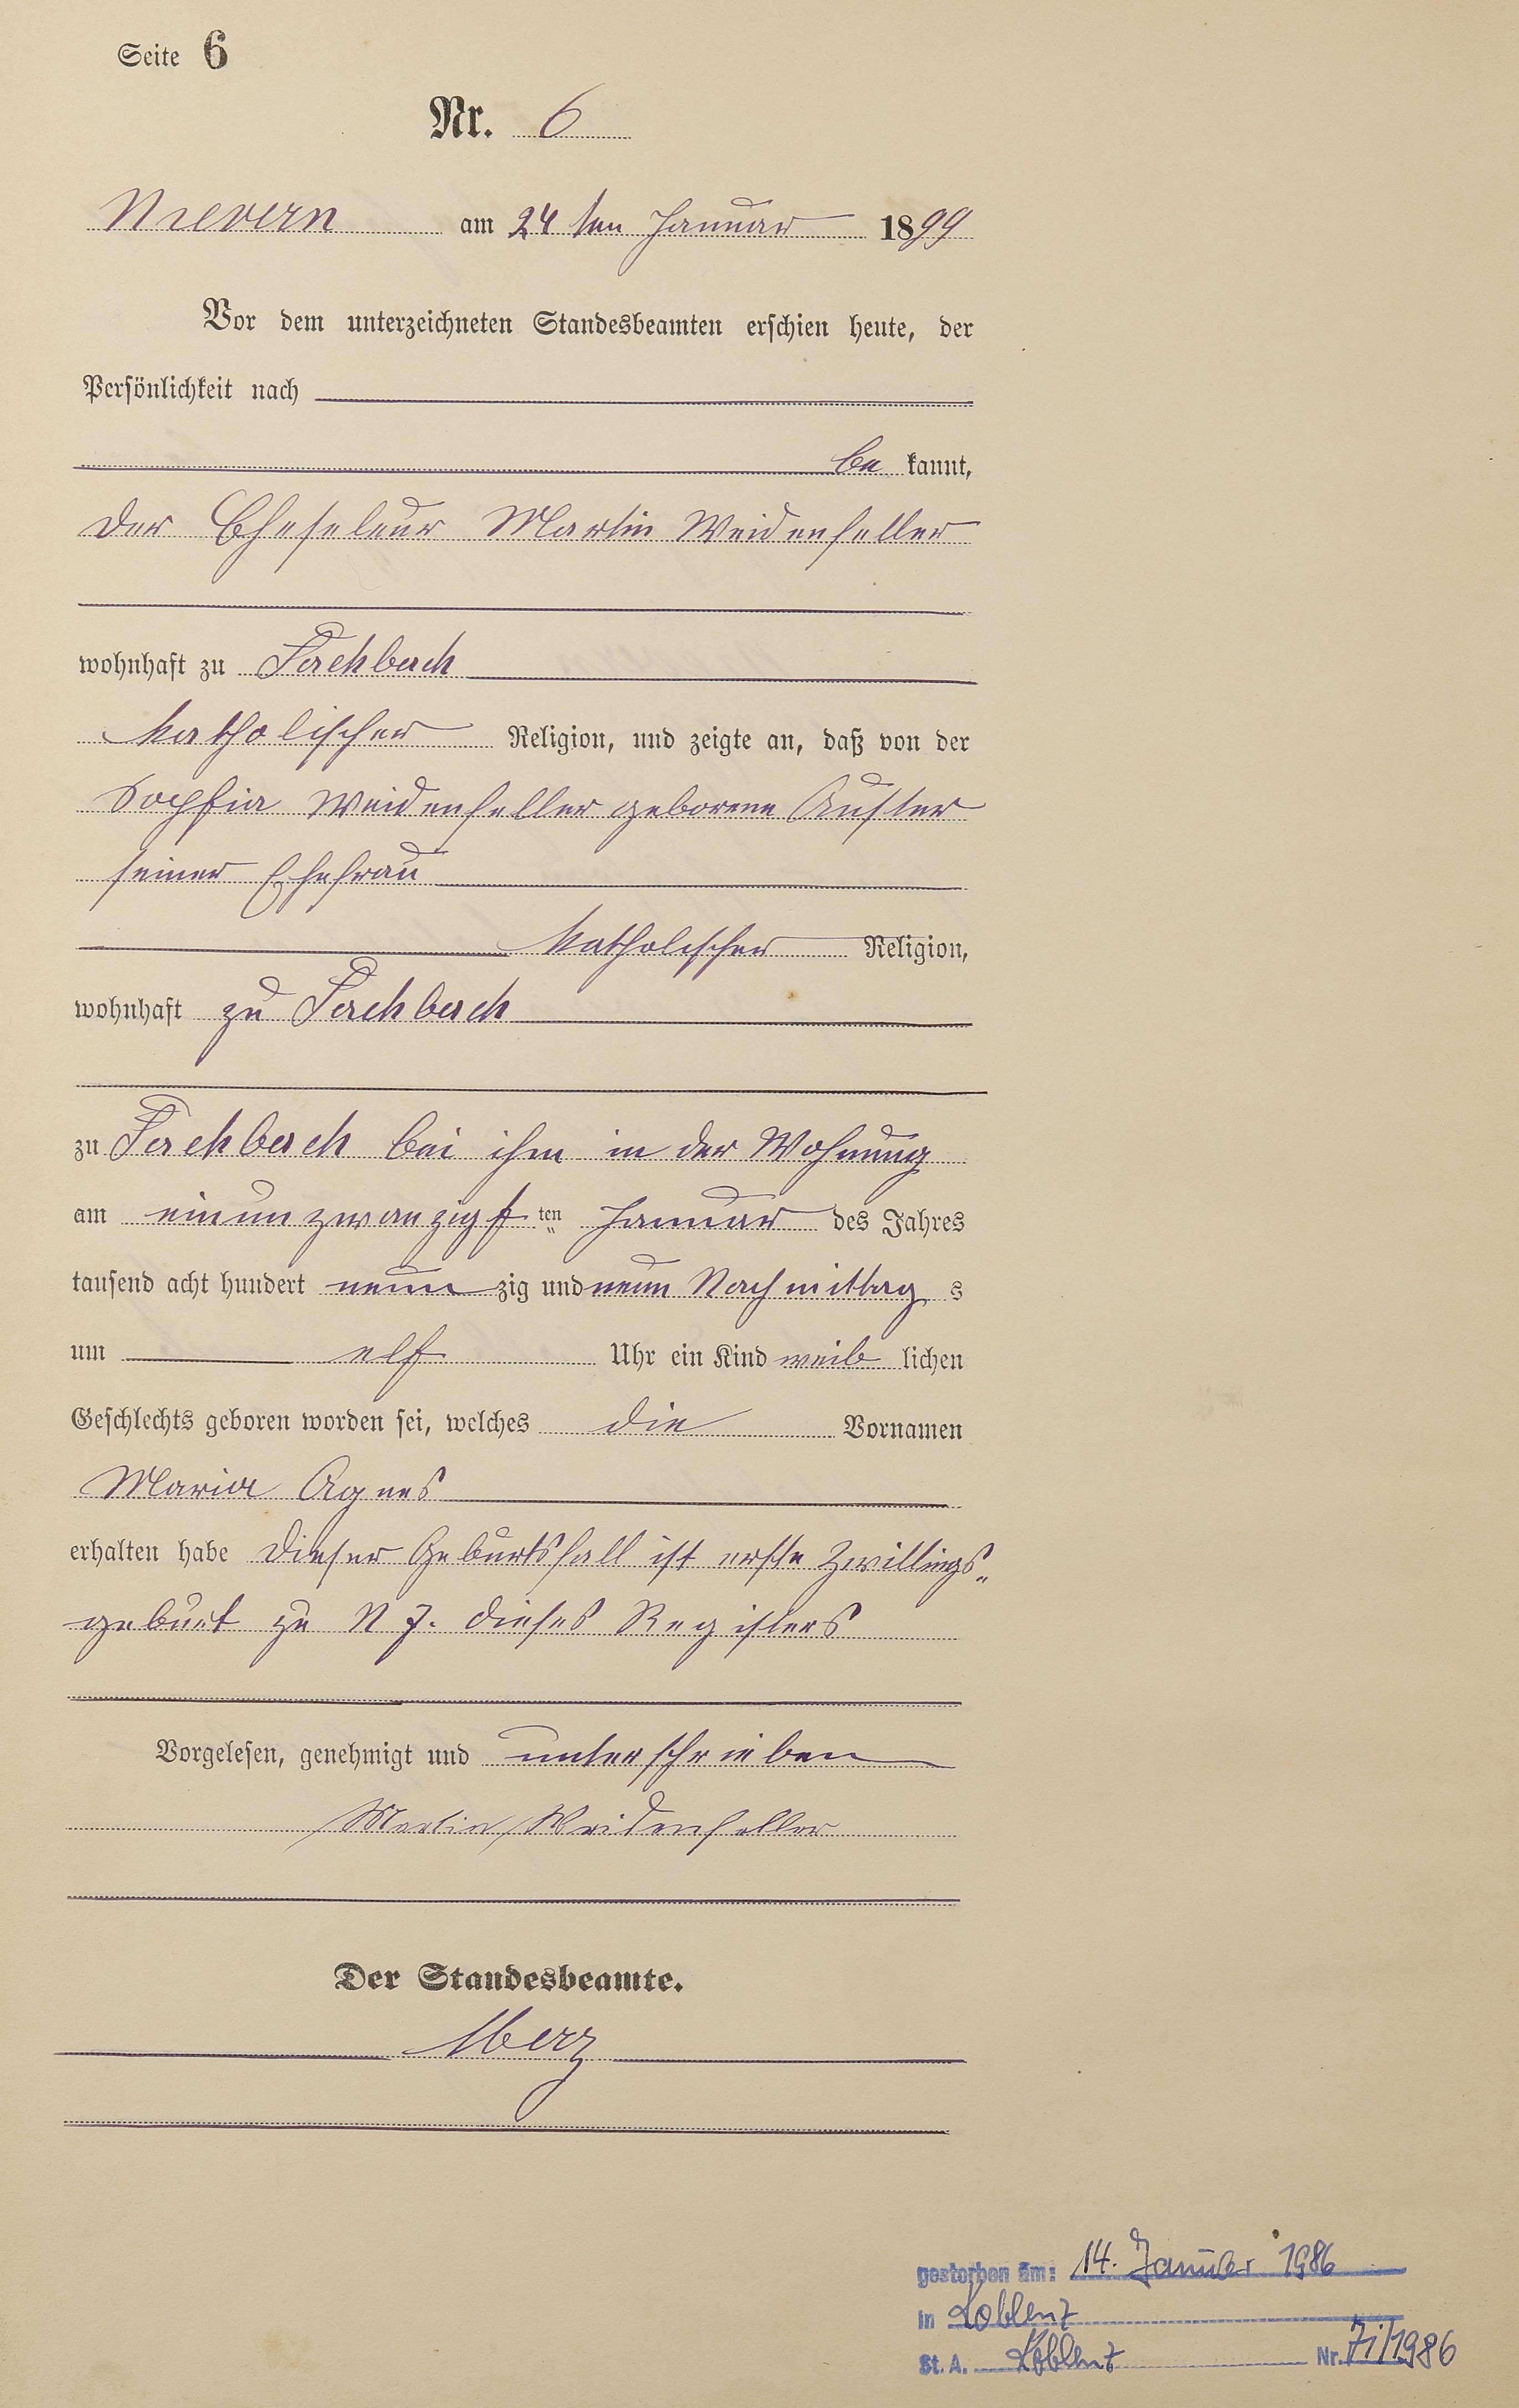 Seite 6
Nr. 6
Nievern am 24 ten Januar 1899
Vor dem unterzeichneten Standesbeamten erschien heute, der
Persönlichkeit nach
be kannt,
der Chiseleur Martin Weidenfeller
wohnhaft zu Fachbach
katholischer Religion, und zeigte an, daß von der
Sophia Weidenfeller geborene
seiner Ehefrau
katholischer Religion,
wohnhaft zu Fachbach
zu Fachbach bei ihm in der Wohnung
am einunzwanzigs ten Januar des Jahres
tausend acht hundert neun zig und neun Nachmittag s
um elf Uhr ein Kind weib lichen
Geschlechts geboren worden sei, welches die Vornamen
Maria Agnes
erhalten habe dieser Geburtsfall ist erste Zwillings„
geburt zu N 7. dieses Registers
Vorgelesen, genehmigt und unterschrieben
Martin Weidenfeller
Der Standesbeamte.
gestorben am: 14. Januar 1986
in Koblenz
St. A. Koblenz Nr. 71/1986